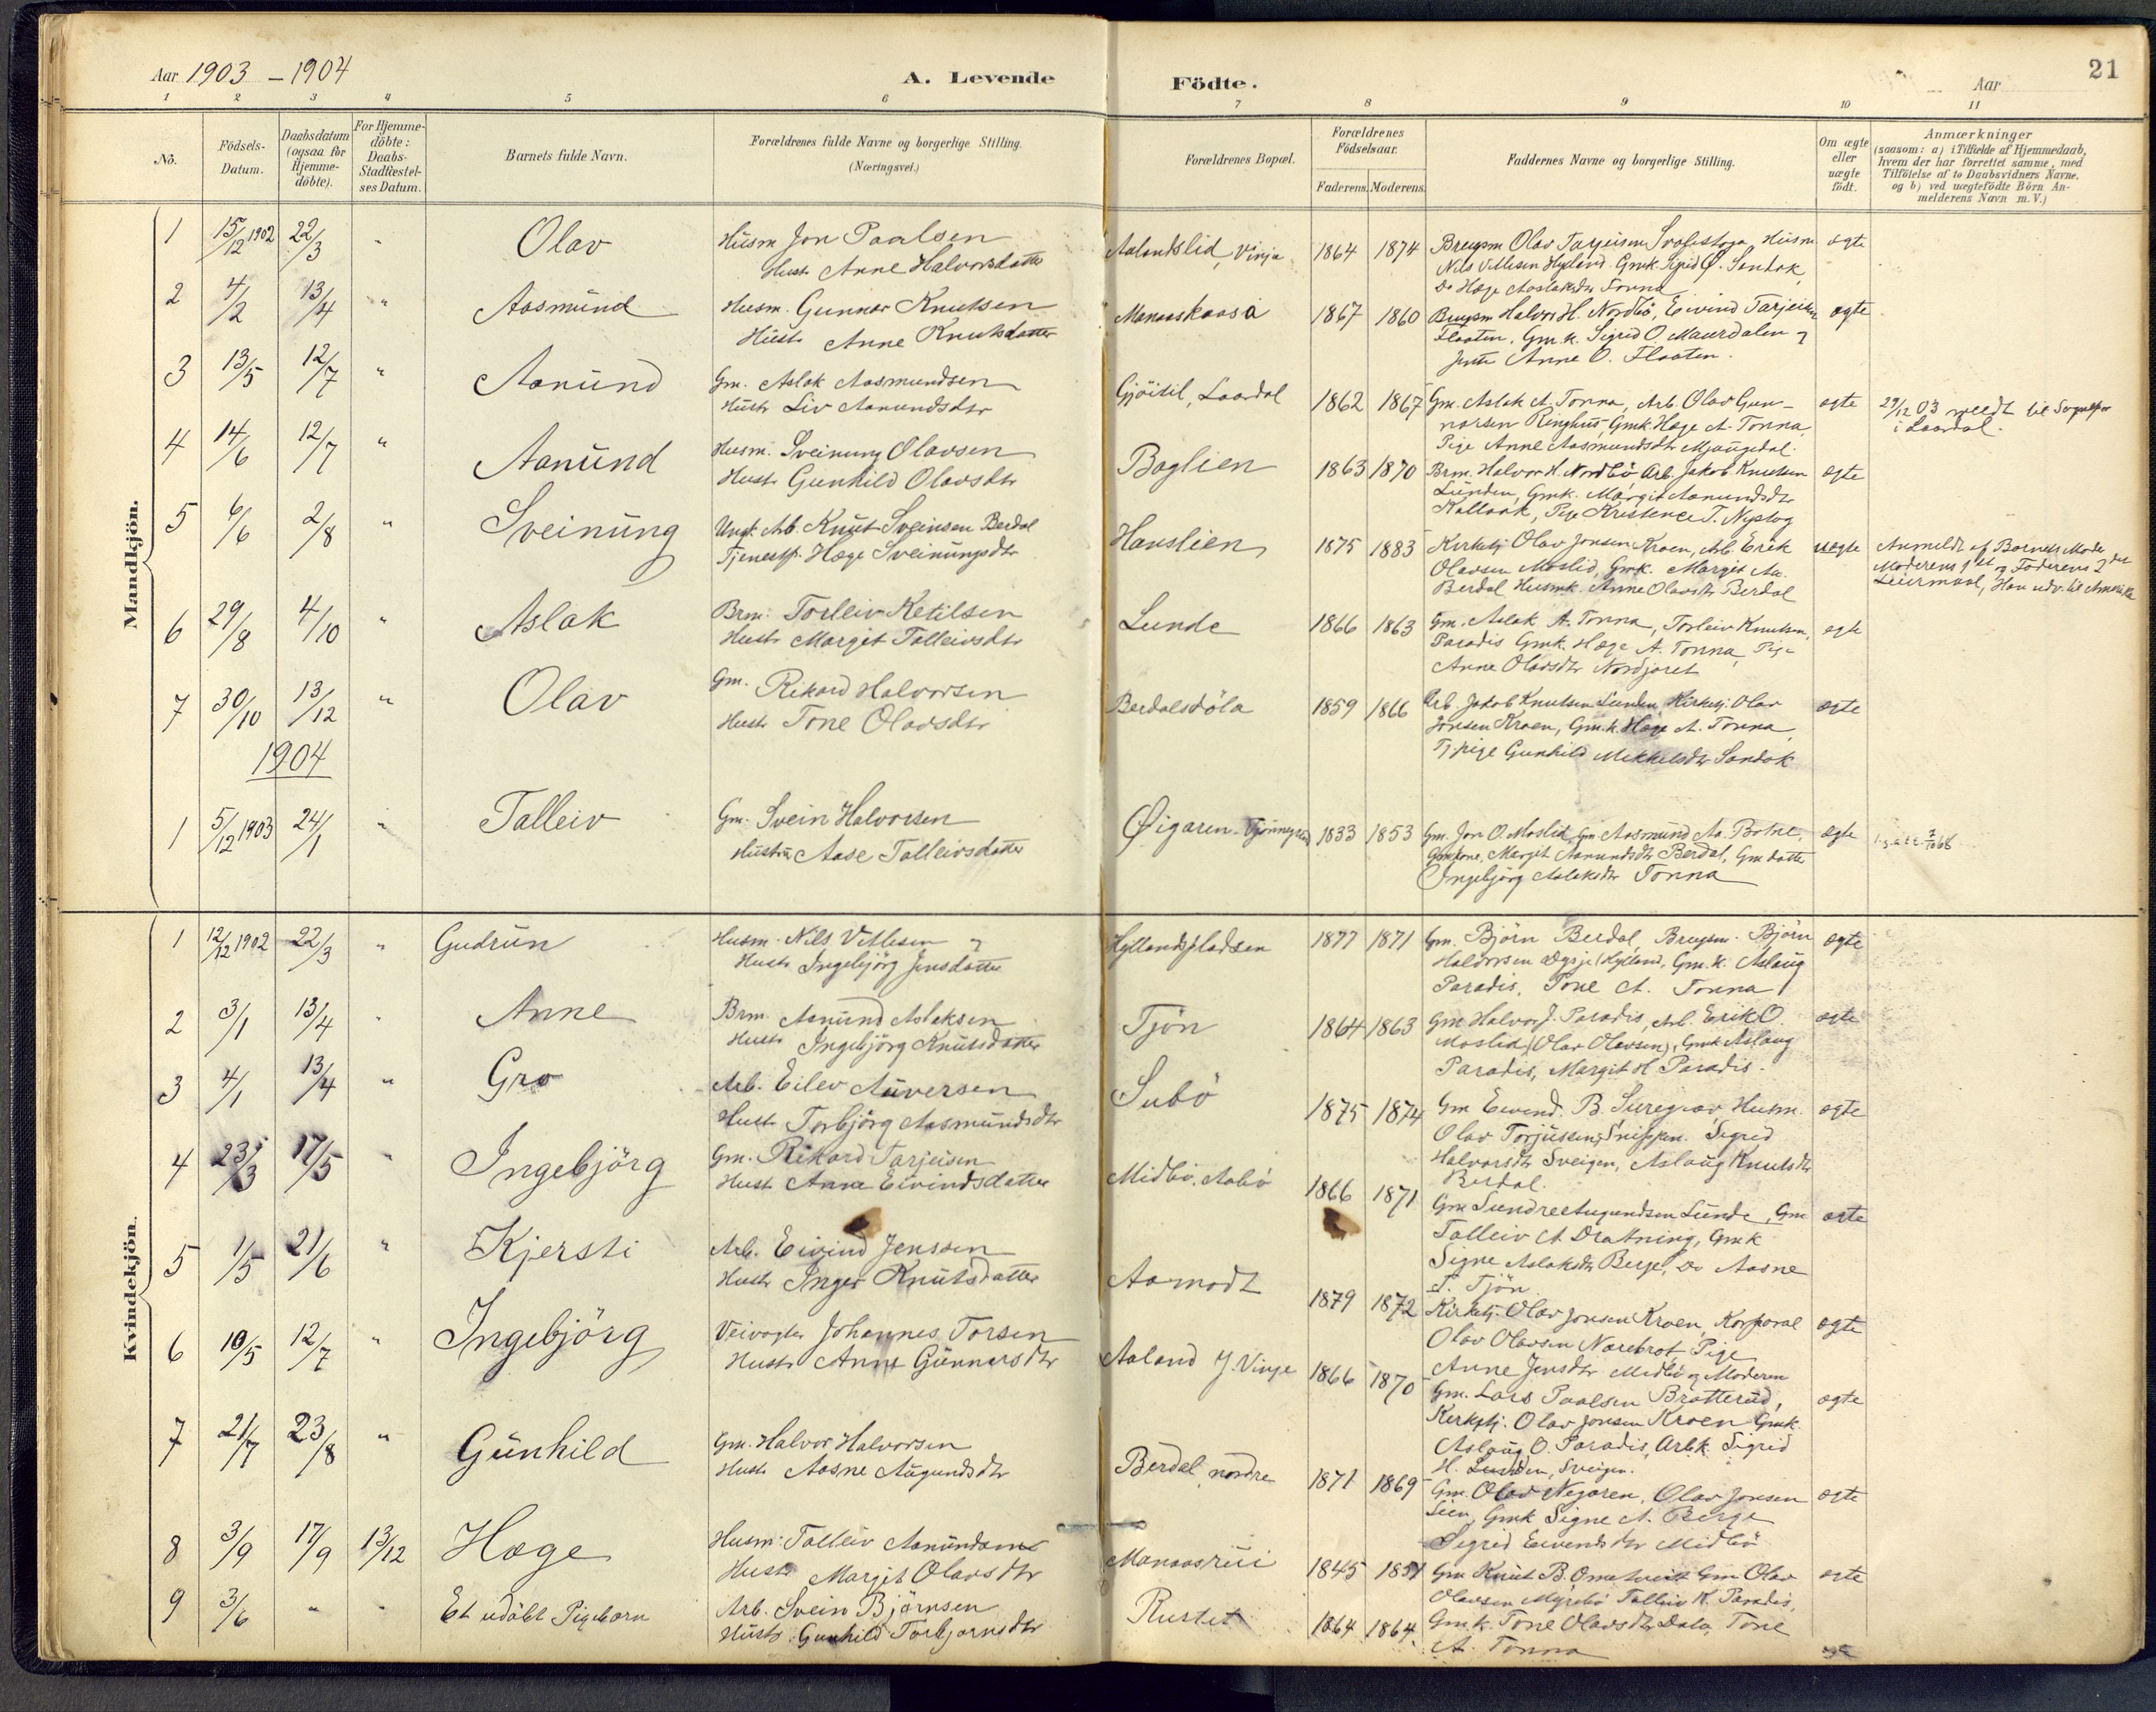 Aar 1903 - 1904
A. Levende Födte.
Aar
21
1 2 3 4 5 6 7 8 9 10 11
No.
Födsels-Datum.
Daabsdatum (ogsaa for Hjemme-döbte).
For Hjemme-döbte: Daabs-Stadfæstel-ses Datum.
Barnets fulde Navn.
Forældrenes fulde Navne og borgerlige Stilling.
(Næringsvei.)
Forældrenes Bopæl.
Forældrenes Födselsaar.
Faderens. Moderens.
Faddernes Navne og borgerlige Stilling.
Om ægte eller uægte födt.
Anmærkninger
(saasom: a) i Tilfælde af Hjemmedaab,
hvem der har forrettet samme, med
Tilföielse af to Daabsvidners Navne,
og b) ved uægtefödte Börn An-
melderens Navn m. V.)
Mandkjön.
1 15/12 1902 22/3 " Olav
Husm Jon Paalsen
Hust. Anne Halvorsdatter
Aalandslid, Vinje 1864 1874
Nils Vetlesen Hylland. Gmk. Sigrid Ø. Sandok
Do Hæge Aslaksdtr Tonna
ægte
2 4/2 13/4 " Aasmund
Husm. Gunnar Knutsen
Hust. Anne Knutsdatter
Manaaskaasa 1867 1860
Brugsm Halvor H. Nordbö, Eivind Tarjeisen
Flaaten, Gm.k. Sigrid O. Maurdalen
Anne O. Flaaten.
ægte
3 13/5 12/7 " Aanund
Gm. Aslak Aasmundsen
Hustr Liv Aanundsdtr
Gjöitil, Laardal 1862 1867
Gm. Aslak A. Tonna, Arb. Olav Gun-
narsen Ringhus, Gmk. Hæge A. Tonna,
Pige Anne Aasmundsdtr Mjaugedal.
ægte
29/12 03 meldt til Sognepr
i Laardal.
4 14/6 12/7 " Aanund
Husm. Sveinung Olavsen
Hustr Gunhild Olavsdtr
Baglien 1863 1870
Brm. Halvor H. Nordbö Arb. Jakob Knutsen
Lunden, Gmk. Margit Aanundsdtr
Kallaak, Pige Kristence T. Nystog
ægte
5 6/6 2/8 " Sveinung
Ungk. Arb. Knut Sveinsen Berdal
Tjenestp. Hæge Sveinungsdtr
Hauslien 1875 1883
Kirketj. Olav Jonsen Kroen, Arb. Erik
Olavsen Moslid, Gmk. Margit Aa.
Berdal Husmk. Anne Olavsdtr Berdal
uægte
Anmeldt af Barnets Moder
Moderens 1ste og Faderens 2det
Leiermaal, Han udv. til Amerika
6 29/8 4/10 " Aslak
Brm. Torleiv Ketilsen
Hustr Margit Talleivsdtr
Lunde 1866 1863
Gm. Aslak A. Tonna, Torleiv Knutsen,
Paradis Gmk. Hæge A. Tonna, Pige
Anne Olavsdtr Nordjoret
ægte
7 30/10 13/12 " Olav
Gm. Rikard Halvorsen
Hustr Tone Olavsdtr
Berdalsdöla 1859 1866
Arb. Jakob Knutsen Lunden Kirketj. Olav
Jonsen Kroen, Gm.k. Hæge A. Tonna,
Tj.pige Gunhild Mikkelsdtr Sandok
ægte
1904
1 5/12 1903 24/1 " Talleiv
Gm. Svein Halvorsen
Hustru Aase Talleivsdatter
Øigaren 1833 1853
Gm. Jon O. Moslid, Gm Aasmund Aa. Botne,
Gmkone, Margit Aanundsdtr Berdal, Gm datter
Ingebjörg Aslaksdtr Tonna
ægte
Kvindekjön.
1 12/12 1902 22/3 " Gudrun
Husm. Nils Vetlesen
Hustr Ingebjörg Jensdatter
Hyllandspladsen 1877 1871
Gm. Björn Berdal, Brugsm. Björn
Halvorsen Hylland, Gm.k. Aslaug
Paradis, Tone A. Tonna
ægte
2 3/1 13/4 " Anne
Brm. Aanund Aslaksen
Hustr Ingebjörg Knutsdatter
Tjön 1864 1863
Gm Halvor J. Paradis, Arb. Erik O.
Moslid (Olav Olavsen), Gmk Aslaug
Paradis, Margit H Paradis.
ægte
3 4/1 13/4 " Gro
Arb. Eilev Auversen
Hustr Torbjörg Aasmundsdtr
Subö 1875 1874
Gm Eivend. B. Suregrav Husm.
Olav Torjussen Snippen. Sigrid
Halvorsdtr Sveigen, Aslaug Knutsdtr
Berdal.
ægte
4 23/3 17/5 " Ingebjörg
Gm. Rikard Tarjeisen
Hustr Anne Eivindsdatter
Midbö, Aabö 1866 1871
Gm Lunde, Gm
Talleiv A Dratning, Gmk
Signe Aslaksdtr Berge, Do Aasne
T. Tjön.
ægte
5 1/5 21/6 " Kjersti
Arb. Eivind Jenssen
Hustr Inger Knutsdatter
Aamodt 1879 1872
Kirketj. Olav Jonsen Kroen, Korporal
Olav Olavsen Nærebrot Pige
Anne Jensdtr Midbö og Moderen
ægte
6 10/5 12/7 " Ingebjörg
Veivogter Johannes Torsen
Hustr Anne Gunnarsdtr
Aaland J. Vinje 1866 1870
Gm. Lars Paalsen Bratterud,
Kirketj. Olav Jonsen Kroen Gmk.
Aslaug O. Paradis, Arb.k. Sigrid
H. Lunden, Sveigen.
ægte
7 21/7 23/8 " Gunhild
Gm. Halvor Halvorsen
Hustr Aasne Augundsdtr
Berdal nordre 1871 1869
Gm. Olav Negaren, Olav Jonsen
Lien, Gmk Signe A. Berge
Sigrid Eivendsdtr Midbö
ægte
8 3/9 17/9 13/12 Hæge
Husm. Talleiv Aanundsen
Hustr Margit Olavsdtr
Manaasrui 1845 1851
Gm Knut B. Gm Olav
Olavsen Myrebö Talleiv K. Paradis,
Gm.k. Tone Olavsdtr Dala, Tone
A. Tonna
ægte
9 3/6 " " Et udöbt Pigebarn
Arb. Svein Björnsen
Hustr. Gunhild Torbjørnsdtr
Rustet 1864 1864